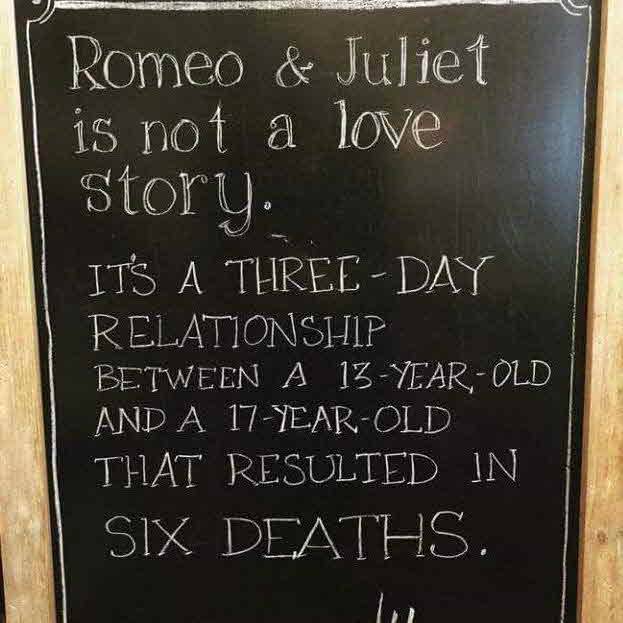 Romeo & Juliet
is not a love
story.
IT'S A THREE-DAY
RELATIONSHIP
BETWEEN A 13-YEAR-OLD
AND A 17-YEAR-OLD
THAT RESULTED IN
SIX DEATHS.